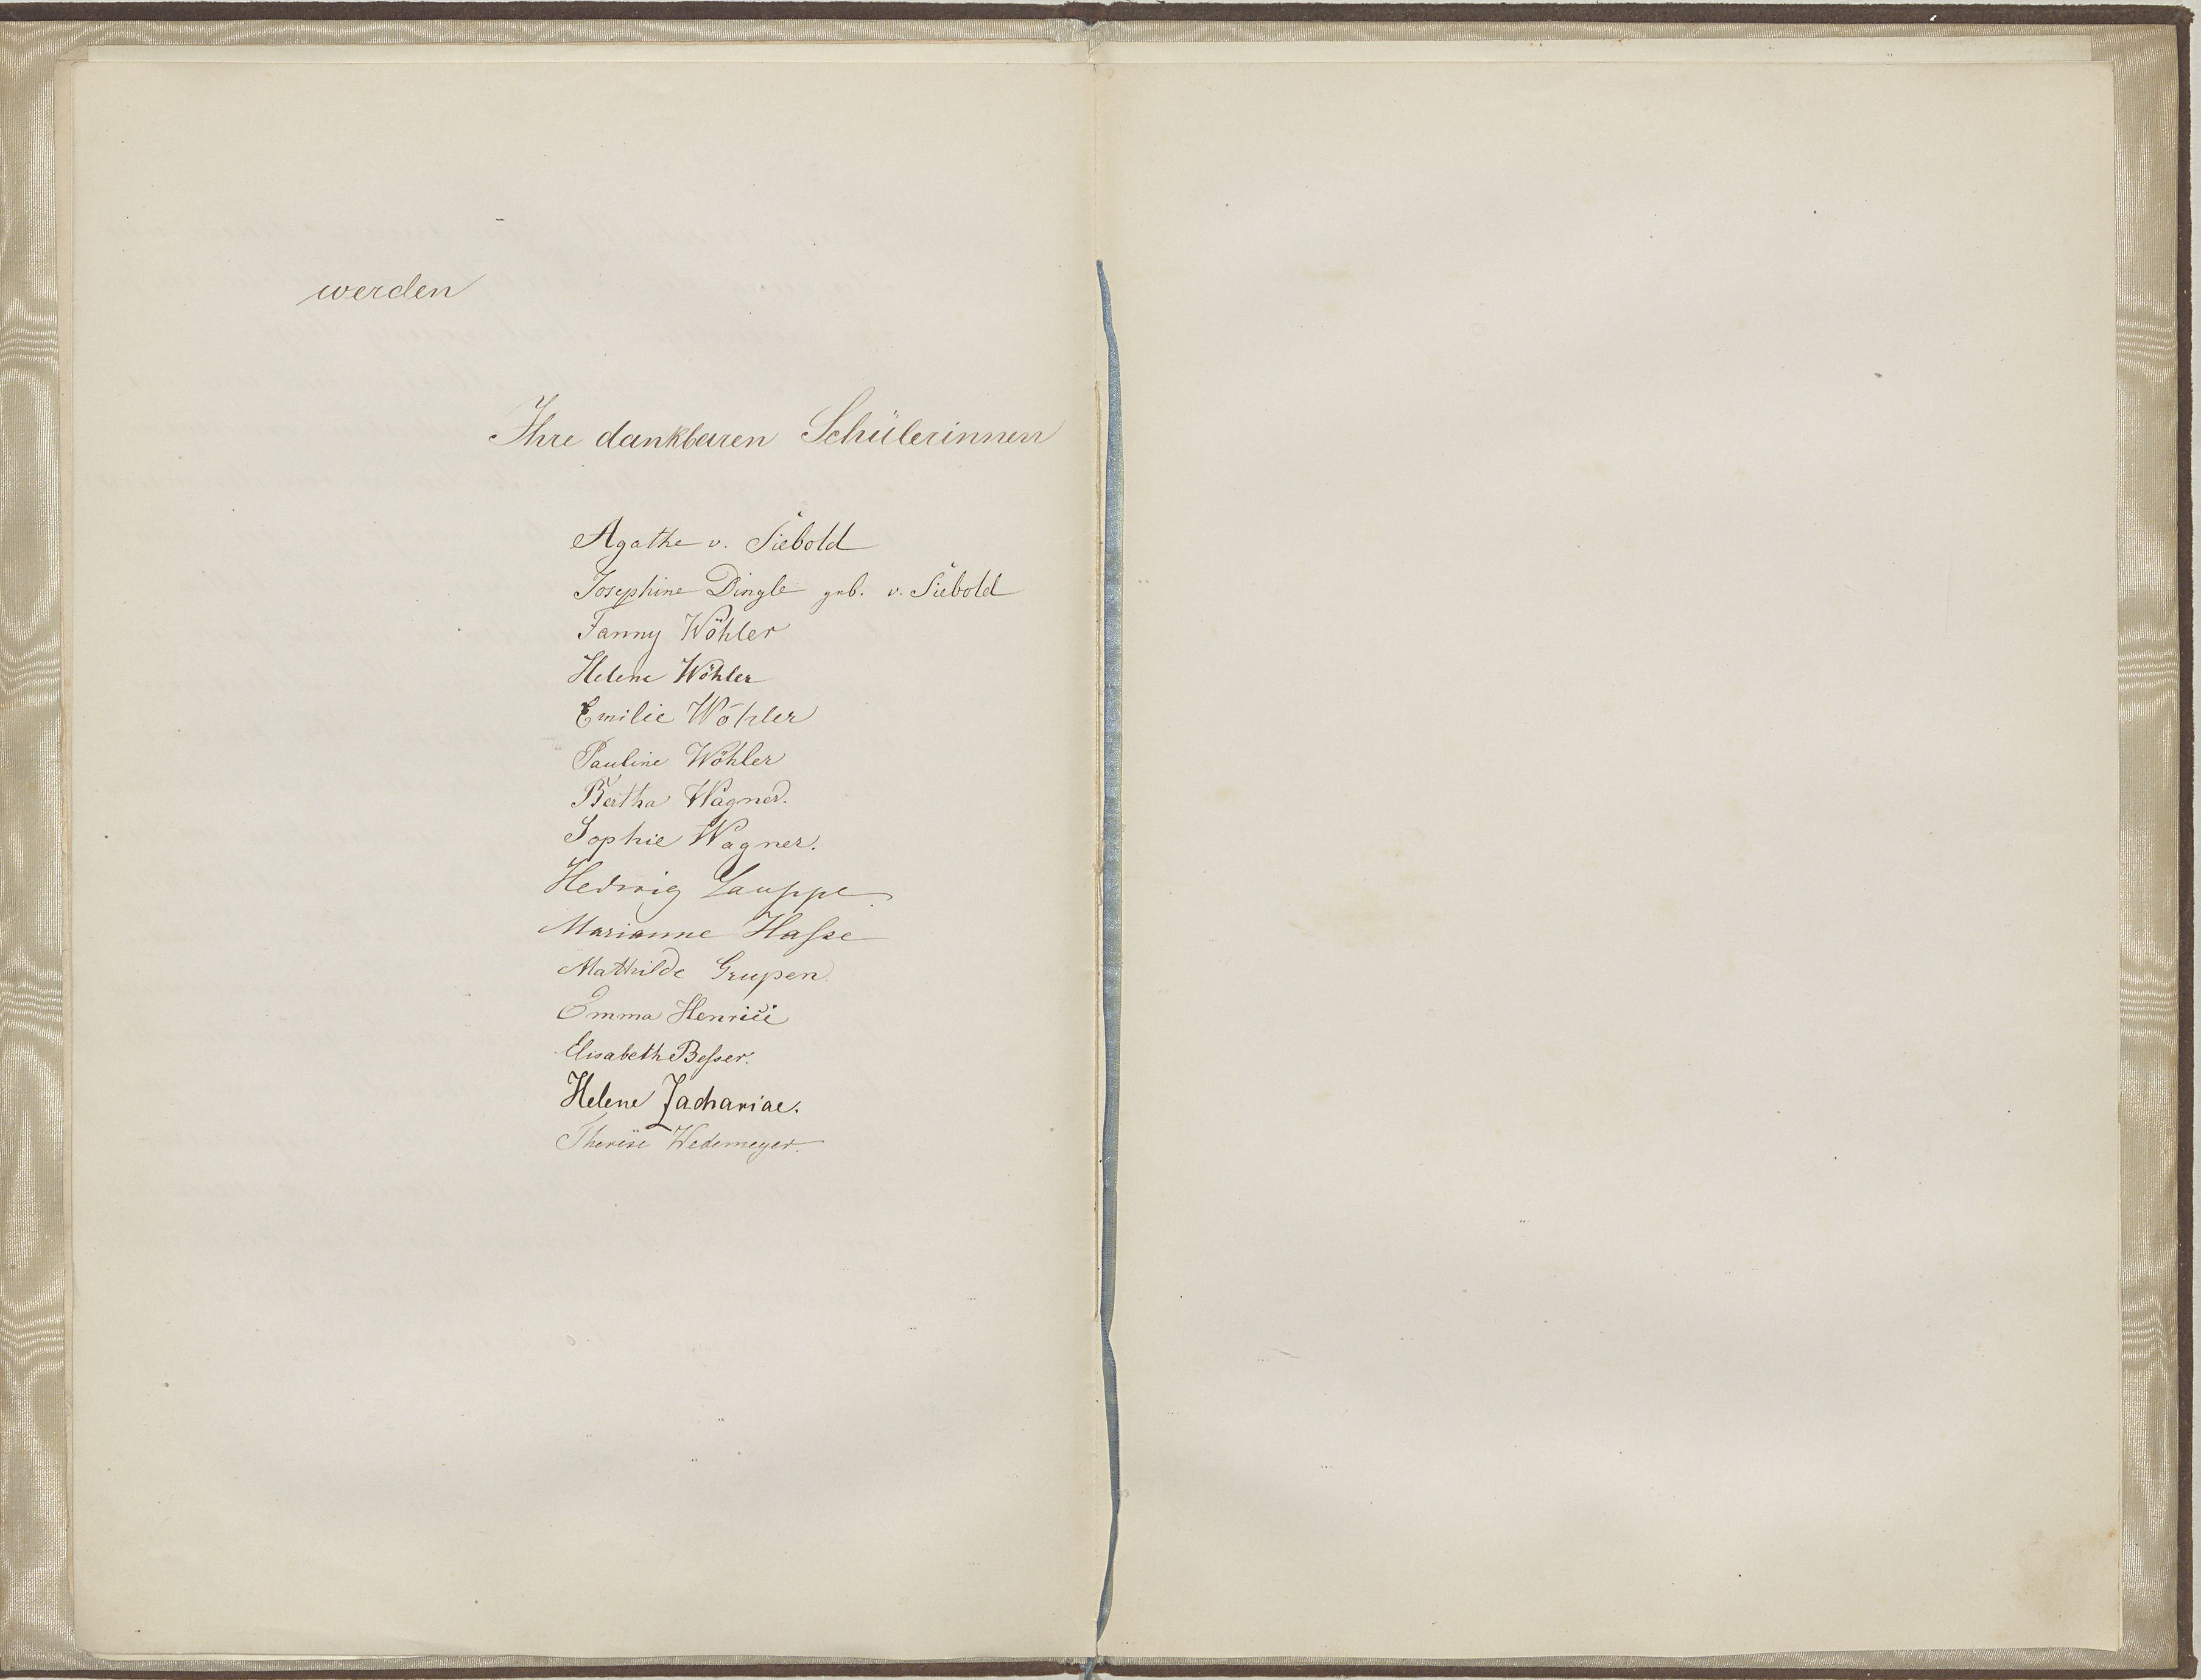 werden
Ihre dankbaren Schülerinnen
Agathe v. Siebold
Josephine Dingle geb. v. Siebold
Fanny Wöhler
Helene Wöhler
Emilie Wöhler
Pauline Wöhler
Bertha Wagner.
Sophie Wagner.
Hedwig Sauppe.
Marianne Hasse
Mathilde Grupen
Emma Henrici
Elisabeth Besser.
Helene Zachariae.
Therese Wedemeyer.